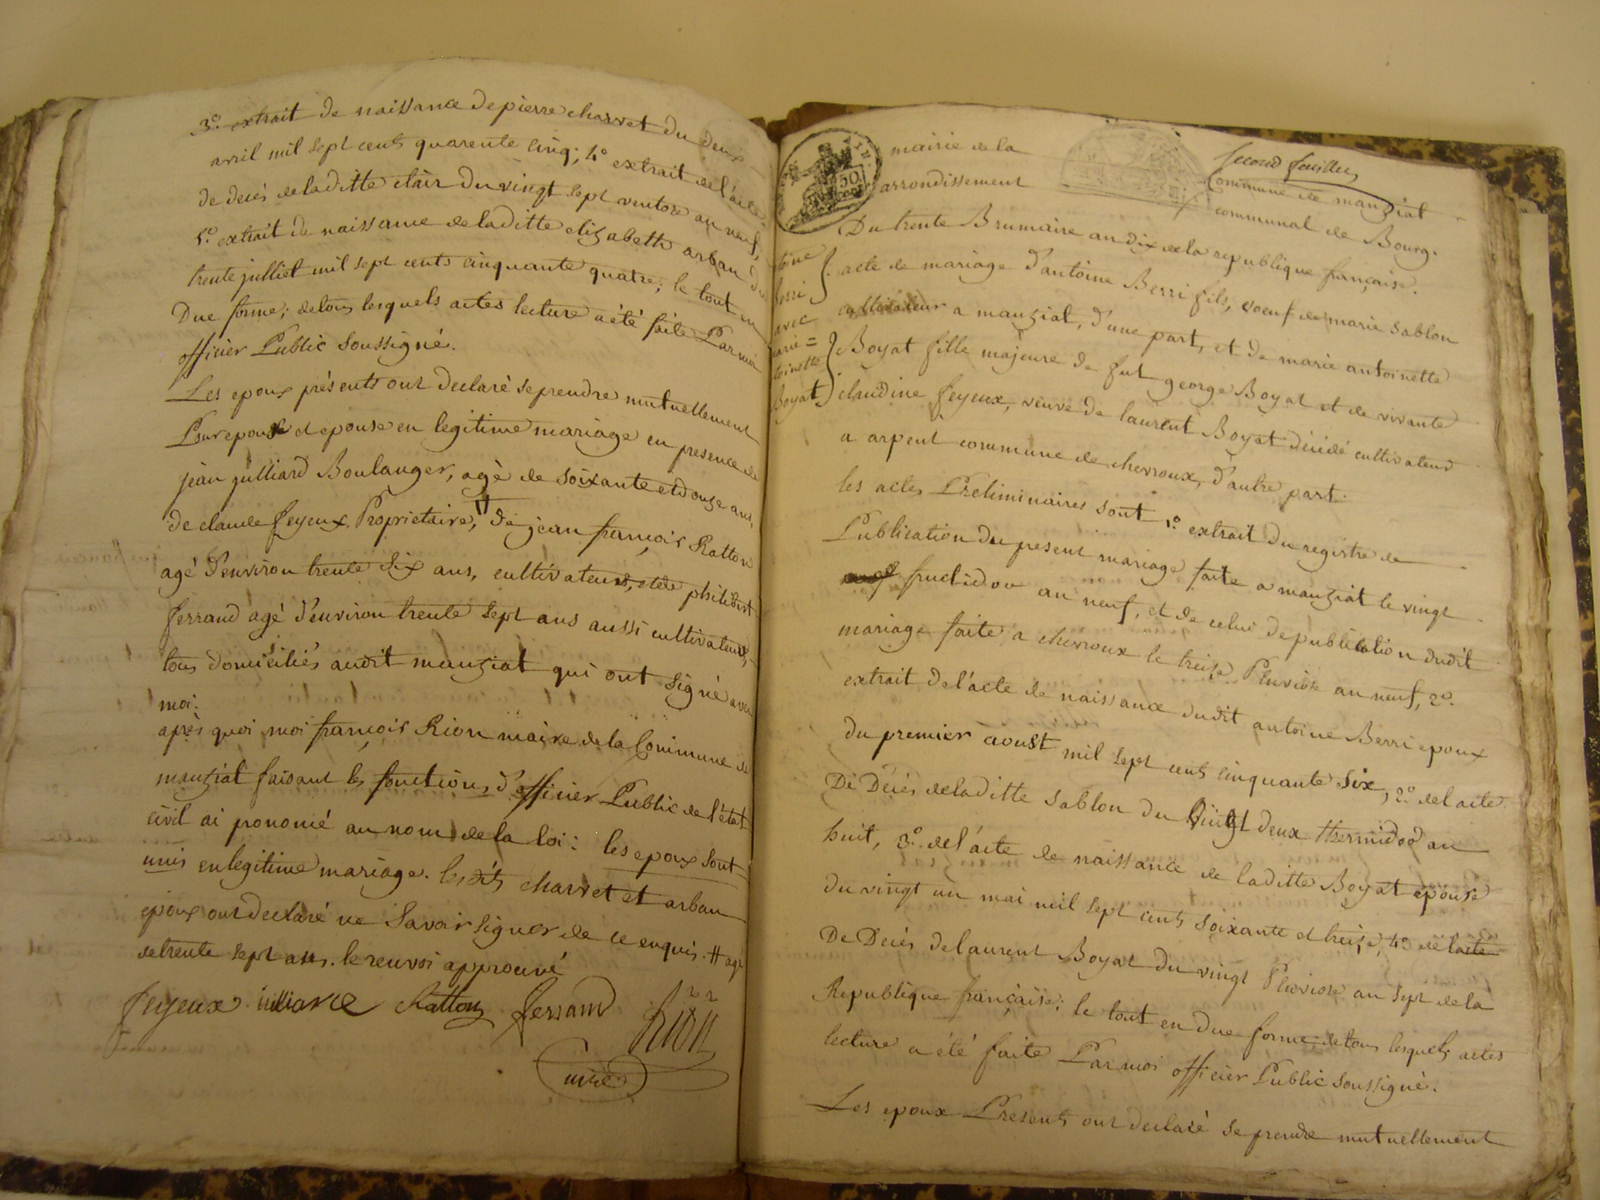 3.° extrait de naissance de pierre charvet du deux
avril mil sept cents quarente cinq; 4.° extrait de l'acte
de deces de laditte clair du vingt sept ventose an neuf,
5.° extrait de naissance de laditte elizabeth arban du
trente julliet mil sept cents cinquante quatre; le tout en
Due forme; de tous lesquels actes lecture a été faite Par moi
officier Public soussigné.
Les epoux présents ont declaré se prendre mutuellement
Pour epoux et epouse en legitime mariage en presence de
jean julliard Boulanger, agé de soixante et douze ans,
de claude feyeux Proprietaire, # de jean françois Ratton
agé d'environ trente six ans, cultivateurs, et de philibert
ferrand agé d'environ trente sept ans aussi cultivateur,
tous domiciliés audit manziat qui ont signé avec
moi.
après quoi moi françois Rion maire de la Commune de
manziat faisant les fonctions d'officier Public de l'état
civil ai prononcé au nom de la loi: les epoux sont
unis en legitime mariage. lesdits charvet et arban
epoux ont declaré ne savoir signer de ce enquis. # agé
de trente sept ans. le renvoi approuvé
feyeux julliard Ratton ferrand Rion
maire
second feuillet
mairie de la Commune de manziat
arrondissement communal de Bourg.
50
Du trente Brumaire an dix de la republique française.
acte de mariage d'antoine Berri fils, voeuf de marie sablon
cultivateur a manziat, d'une part, et de marie antoinette
Boyat fille majeure de fut george Boyat et de vivante
claudine feyeux, veuve de laurent Boyat décédé cultivateur
a arpent commune de chevroux, d'autre part.
Berri
avec
marie =
toinette
Boyat
les actes Preliminaires sont 1.° extrait du registre de
Publication du present mariage faite a manziat le vingt
fructidor an neuf, et de celui de publication dudit
mariage faite a chevroux le treize Pluviose an neuf, 2.°
extrait de l'acte de naissance dudit antoine Berri epoux
du premier aoust mil sept cents cinquante six, 2.° de l'acte
De Déces de laditte sablon du vingt deux thermidor an
huit, 3.° de l'acte de naissance de laditte Boyat epouse
du vingt un mai mil sept cents soixante et treize, 4.° de l'acte
De Decès de laurent Boyat du vingt Pluviose an sept de la
Republique française; le tout en due forme, de tous lesquels actes
lecture a été faite Par moi officier Public soussigné.
Les epoux Presents ont declaré se prendre mutuellement